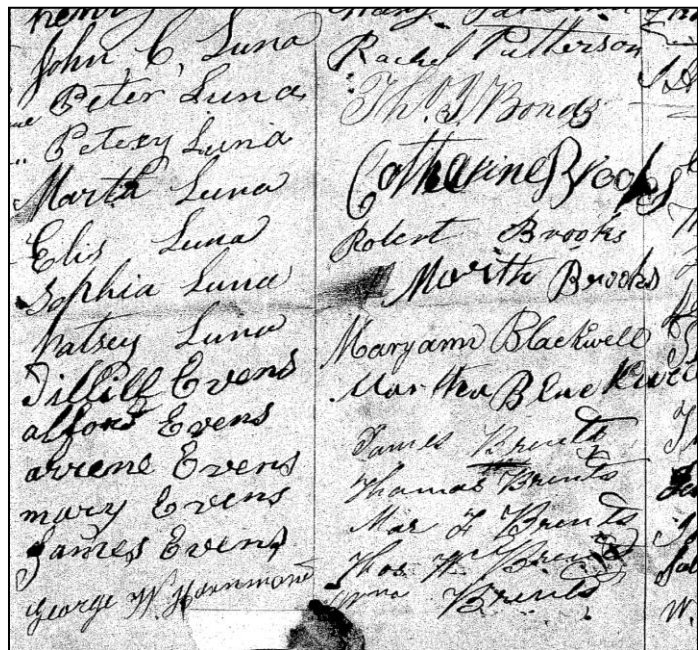 Henry
John C, Luna
Peter Luna
Petexy Luna
Marth Luna
Elis Luna
Sophia Luna
Patsey Luna
Evens
alford Evens
arrene Evens
mary Evens
James Evens
George W. Hammond
Mary
Rachel Patterson
Bonds
Catherine Brooks
Robert Brooks
Marth Brooks
Maryann Blackwell
Martha Blackwell
James Brents
Thomas Brents
Mar Brents
Thos Brents
Brents
W.